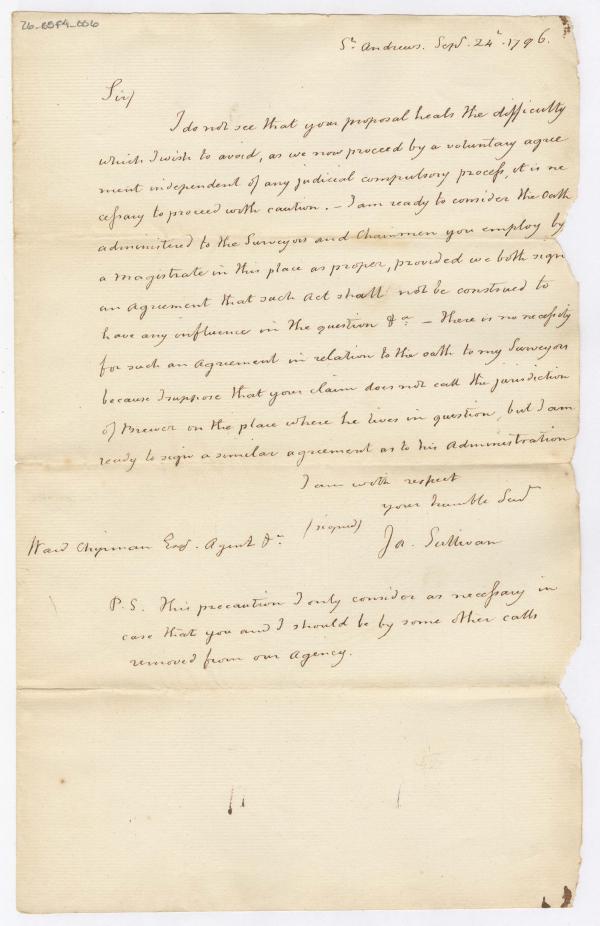 26-B5F4-006
St. Andrews. Sepr. 24t. 1796.
Sir/
I do not see that your proposal heals the difficulty
which I wish to avoid, as we now proceed by a voluntary agree
ment independent of any judicial compulsory process, it is ne
cessary to proceed with caution. – I am ready to consider the Oath
administered to the Surveyors and Chainmen you employ by
a magistrate in this place as proper, provided we both sign
an Agreement that such Act shall not be construed to
have any influence in the question &a – there is no necessity
for such an Agreement in relation to the oath to my Surveyors
because I suppose that your claim does not call the jurisdiction
of Brewer on the place where he lives in question, but I am
ready to sign a similar agreement as to his Administration
I am with respect
your humble Servt
(signed)
Ja. Sullivan
Ward Chipman Esqr. Agent &c
P.S. This precaution I only consider as necessary in
case that you and I should be by some other calls
removed from our Agency.